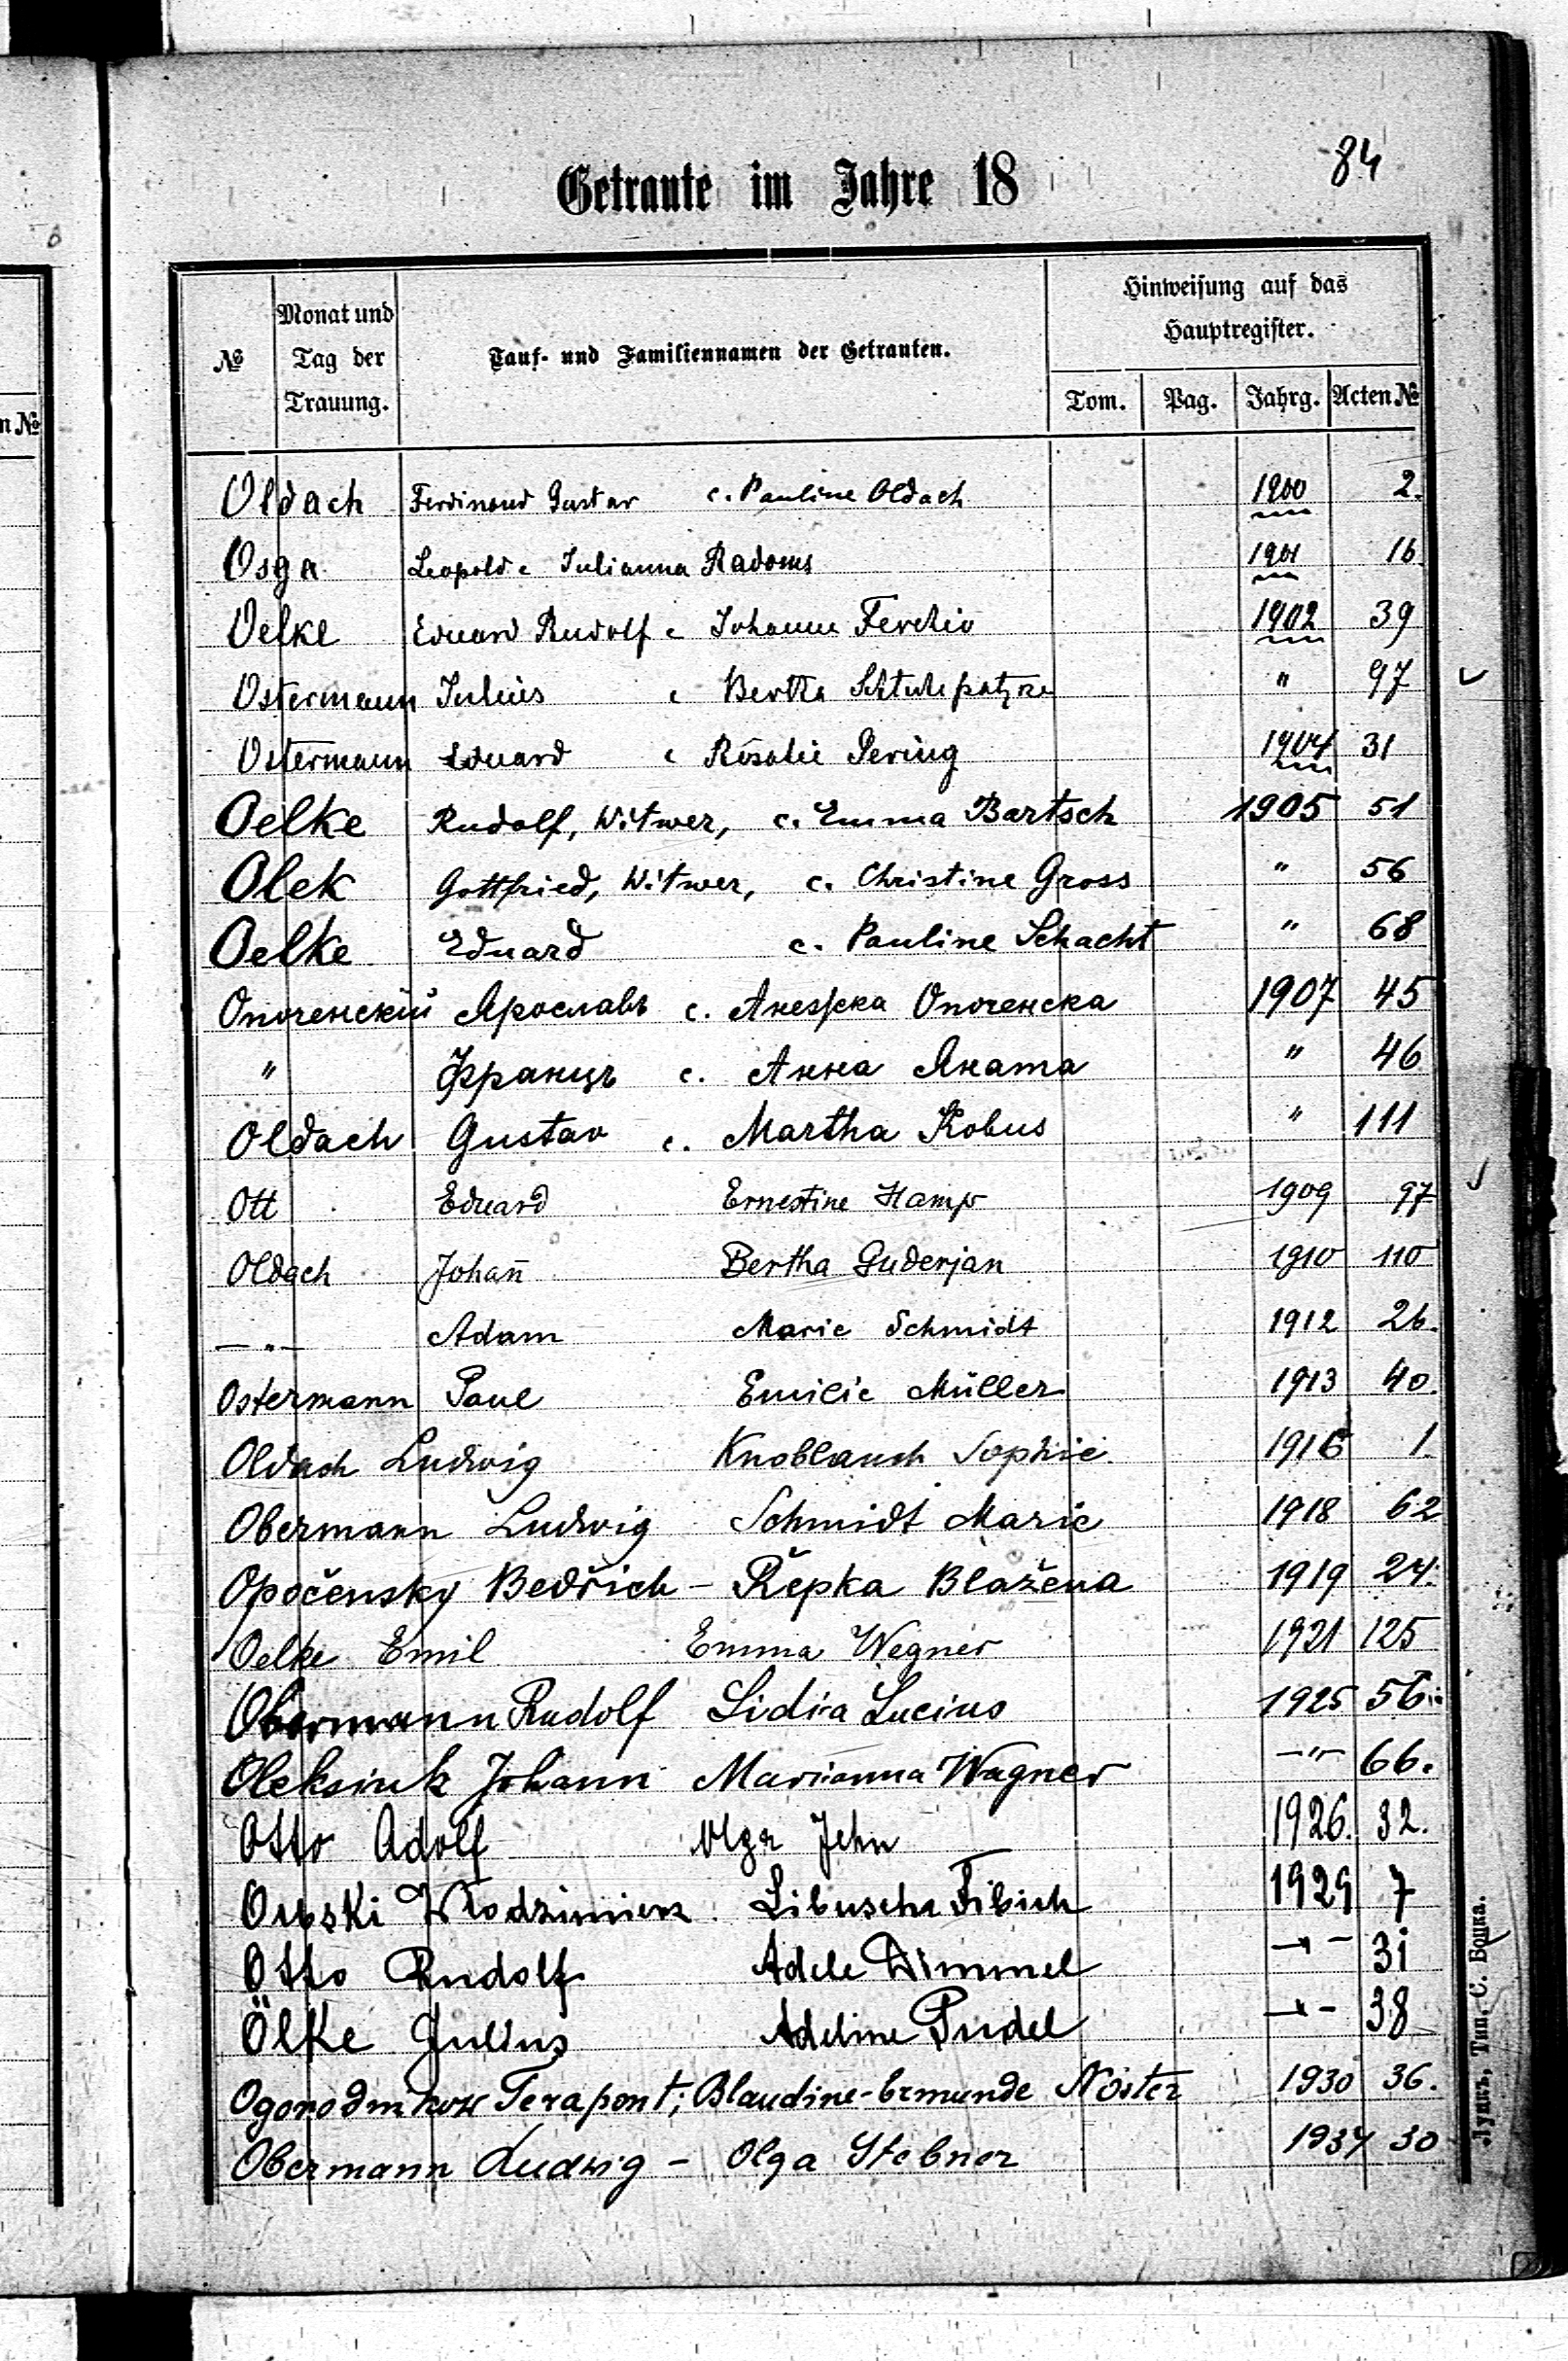 84
Getraute im Jahre 18
№ Monat und Tag der Trauung. Tauf- und Familiennamen der Getrauten. Hinweisung auf das Hauptregister.
Tom. Pag. Jahrg. Acten №
n №
Oldach Ferdinand Gustav c. Pauline Oldach 1900 2.
Osga Leopold c Julianna Radoms 1901 16
Oelke Eduard Rudolf c Johanne 1902 39
Ostermann Julius c Bertha " 97
Ostermann Eduard c Rosalie Pering 1904 31
Oelke Rudolf, Witwer, c. Emma Bartsch 1905 51
Olek Gottfried, Witwer, c. Christine Gross " 56
Oelke Eduard c. Pauline Schacht " 68
Опоченскій Ярославъ c. Анежка Опоченска 1907 45
" Францъ c. Анна Яната " 46
Oldach Gustav c. Martha Kobus " 111
Ott Eduard Ernestine Hamp 1909 97
Oldach Johan̄ Bertha Guderjan 1910 110
—"— Adam Marie Schmidt 1912 26.
Ostermann Paul Emilie Müller 1913 40.
Oldach Ludwig Knoblauch Sophie 1916 1.
Obermann Ludwig Schmidt Marie 1918 62
Opočensky Bedřich – Řepka Blažena 1919 24.
Oelke Emil Emma Wegner 1921 125
Obermann Rudolf Lidia Lucius 1925 56.
Oleksiuk Johann Marianna Wagner —"— 66.
Otto Adolf Olga Jehn 1926. 32.
Włodzimierz Libuscha Fibich 1929 7
Otto Rudolf Adele Dimmel —"— 31
Ölke Julius Adeline Pudel —"— 38
Ogorodnikow Terapont; Blaudine-Ermunde Nöster 1930 36.
Obermann Ludwig – Olga Stebner 1934 30
Луцкъ, Тип. С. Бошка.